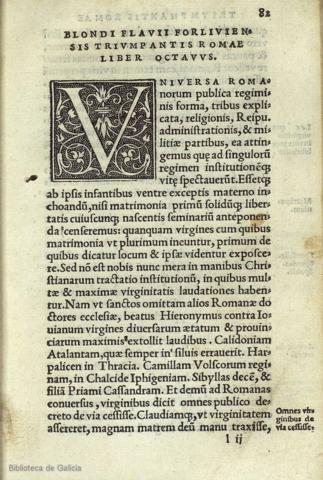 82
BLONDI FLAVII FORLIVIEN-
SIS TRIVMPANTIS ROMAE
LIBER OCTAVVS.
VNIVERSA ROMA-
norum publica regimi
nis forma, tribus expli
cata, religionis, Reipu.
administrationis, & mi
litiæ partibus, ea attin
gemus que ad singulorũ
regimen institutionẽq;
vitę spectauerũt. Essetq;
ab ipsis infantibus ventre exceptis materno in
choandũ, nisi matrimonia primũ solidũq; liber
tatis cuiuscunq; nascentis seminariũ anteponen
da censeremus: quanquam virgines cum quibus
matrimonia vt plurimum ineuntur, primum de
quibus dicatur locum & ipsæ videntur exposce
re. Sed nõ est nobis nunc mera in manibus Chri
stianarum tractatio institutionũ, in quibus mul
tæ & maximæ virginitatis laudationes haben
tur. Nam vt sanctos omittam alios Romanæ do
ctores ecclesiæ, beatus Hieronymus contra Io-
uianum virgines diuersarum ætatum & prouin
ciarum maximis extollit laudibus. Calidoniam
Atalantam, quæ semper in siluis errauerit. Har-
palicen in Thracia. Camillam Volscorum regi
nam, in Chalcide Iphigeniam. Sibyllas decẽ, &
filiã Priami Cassandram. Et demũ ad Romanas
conuersus, virginibus dicit omnes publico de-
creto de via cessisse. Claudiamq;, vt virginitatem
assereret, magnam matrem deũ manu traxisse,
Omnes vir
ginibus de
via cessisse.
l ij
Biblioteca de Galicia